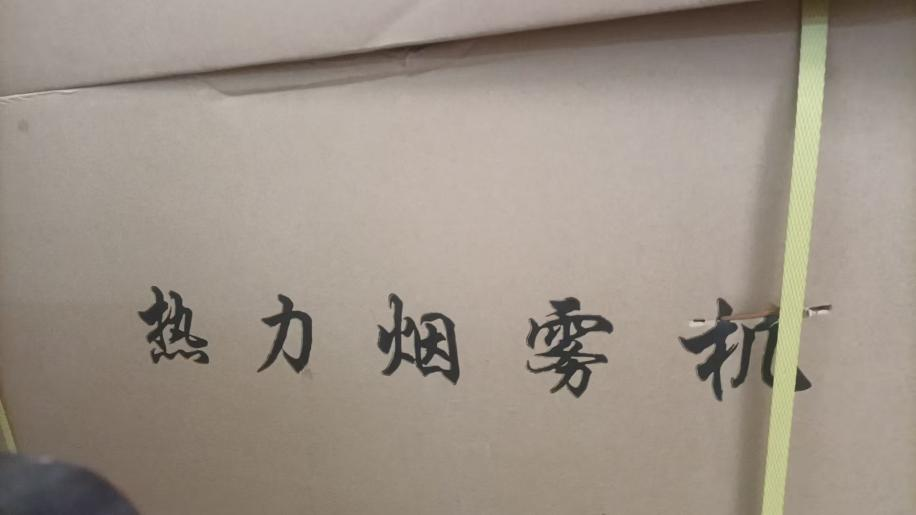 热力烟雾机